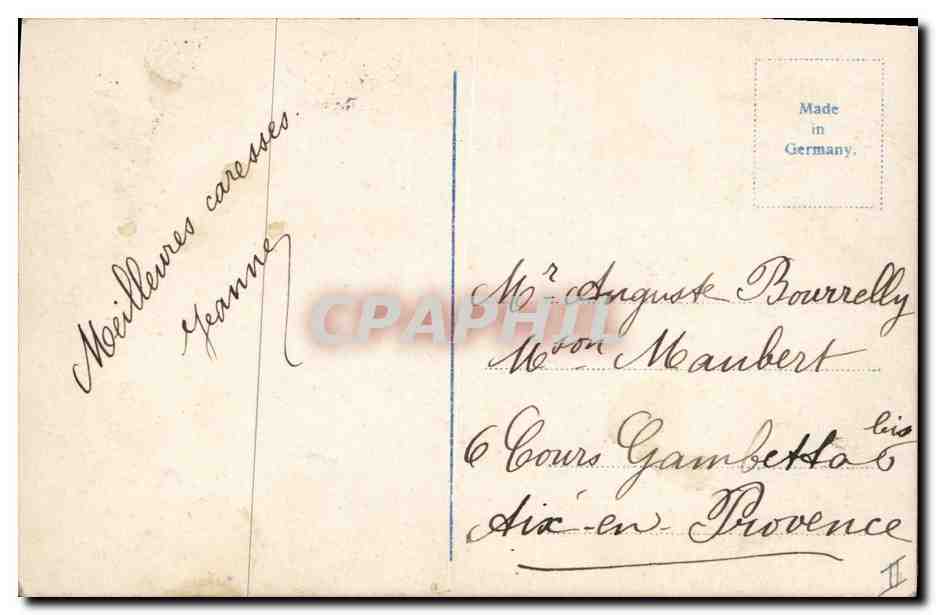 Meilleures caresses.
Jeanne
Made
in
Germany.
Mr. Auguste Bourrelly
Mson Maubert
6 Cours Gambetta 6 bis
Aix-en-Provence
II
CPAPHIL